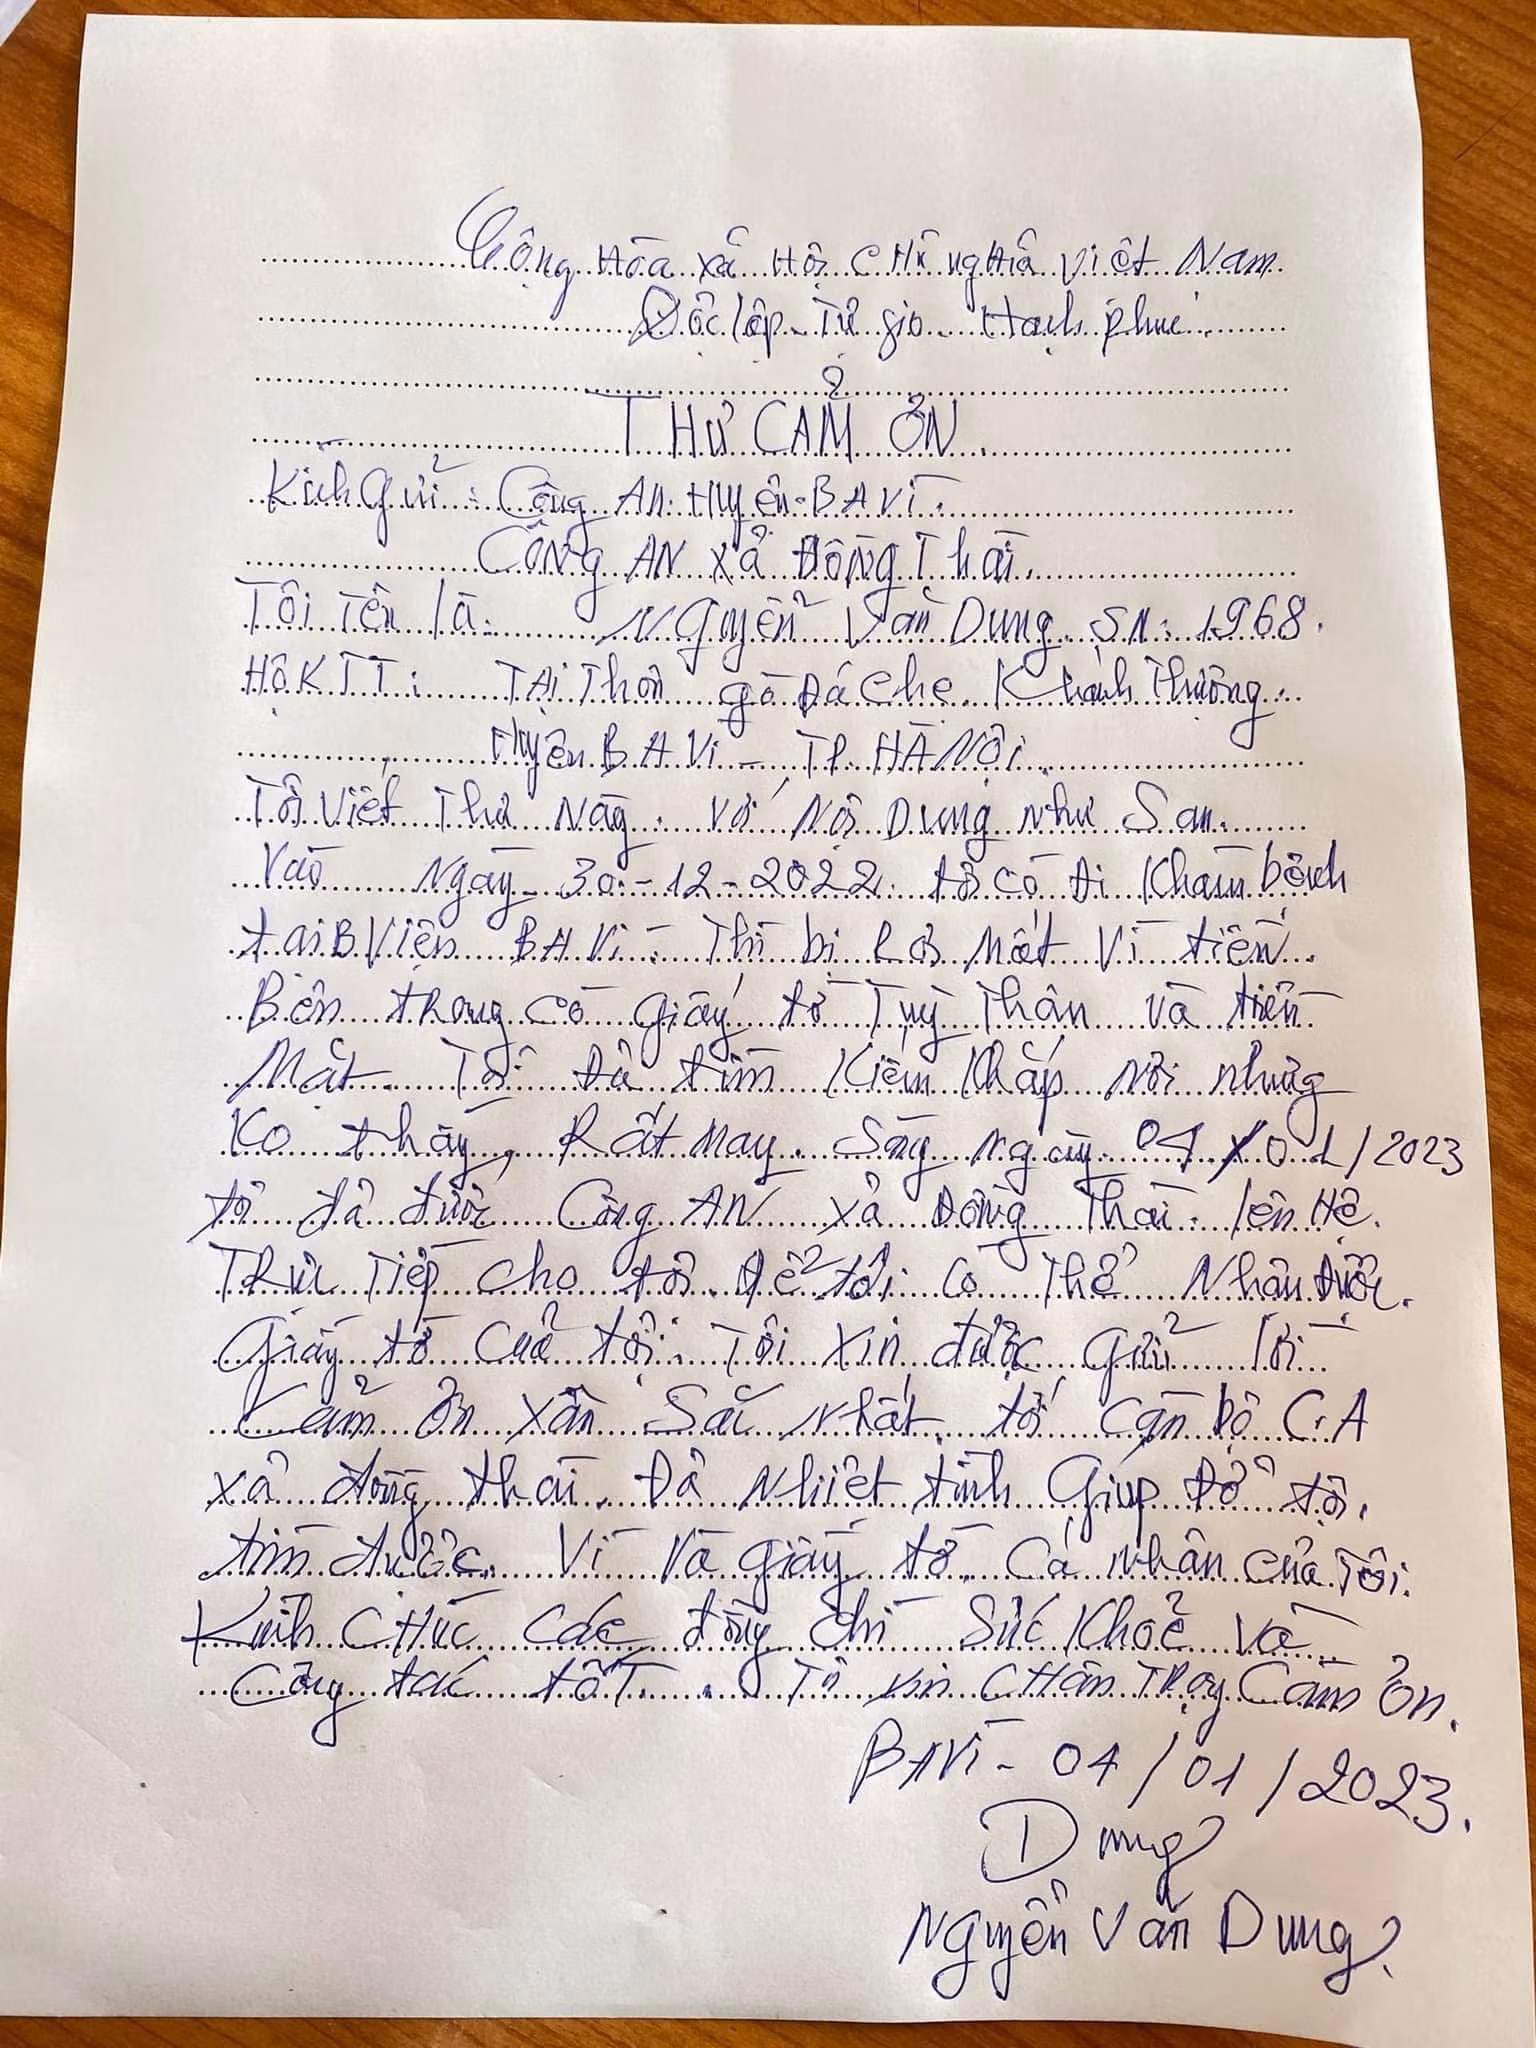 Cộng Hòa xã Hội CHủ nghĩa Việt Nam
Độc lập Tự gio Hạnh phúc
THƯ CẢM ƠN
Kính Gửi: Công AN Huyện BA Vì.
CÔNG AN xã ĐồngThái.
Tôi Tên là: Nguyễn Văn Dung SN: 1968.
Hộ KTT: TạiThôn gò Đá Chẹ Khánh Thượng
Huyện BA Vì – TP. HÀ Nội.
Tôi Viết Thư Này. Với Nội Dung như Sau.
Vào Ngày 30-12-2022. tôi có đi Khám bệnh
tại B.Viện BA Vì. Thì bị Rơi Mất Ví tiền.
Bên trong có Giấy tờ Tuỳ Thân và tiền
Mặt. Tôi Đã tìm Kiếm Khắp Nơi nhưng
Ko thấy, Rất May. Sáng Ngày 04/01/2023
tôi đã được Công AN xã Đồng Thái. liên Hệ.
TRực Tiếp cho tôi Để tôi có Thể Nhận Được.
Giấy tờ Của tôi. Tôi xin được Gửi lời
Cảm Ơn xân Sắc nhất tới cán bộ C.A
xã đồng thái Đã Nhiệt tình Giúp Đỡ tôi.
tìm được. Ví và giấy tờ Cá nhân của Tôi.
Kính CHúc các đồng chí Sức Khoẻ Và
Công tác tốT. Tôi xin CHân TRọng Cảm ơn.
BA Vì - 04/01/2023.
Dung
Nguyễn Văn Dung